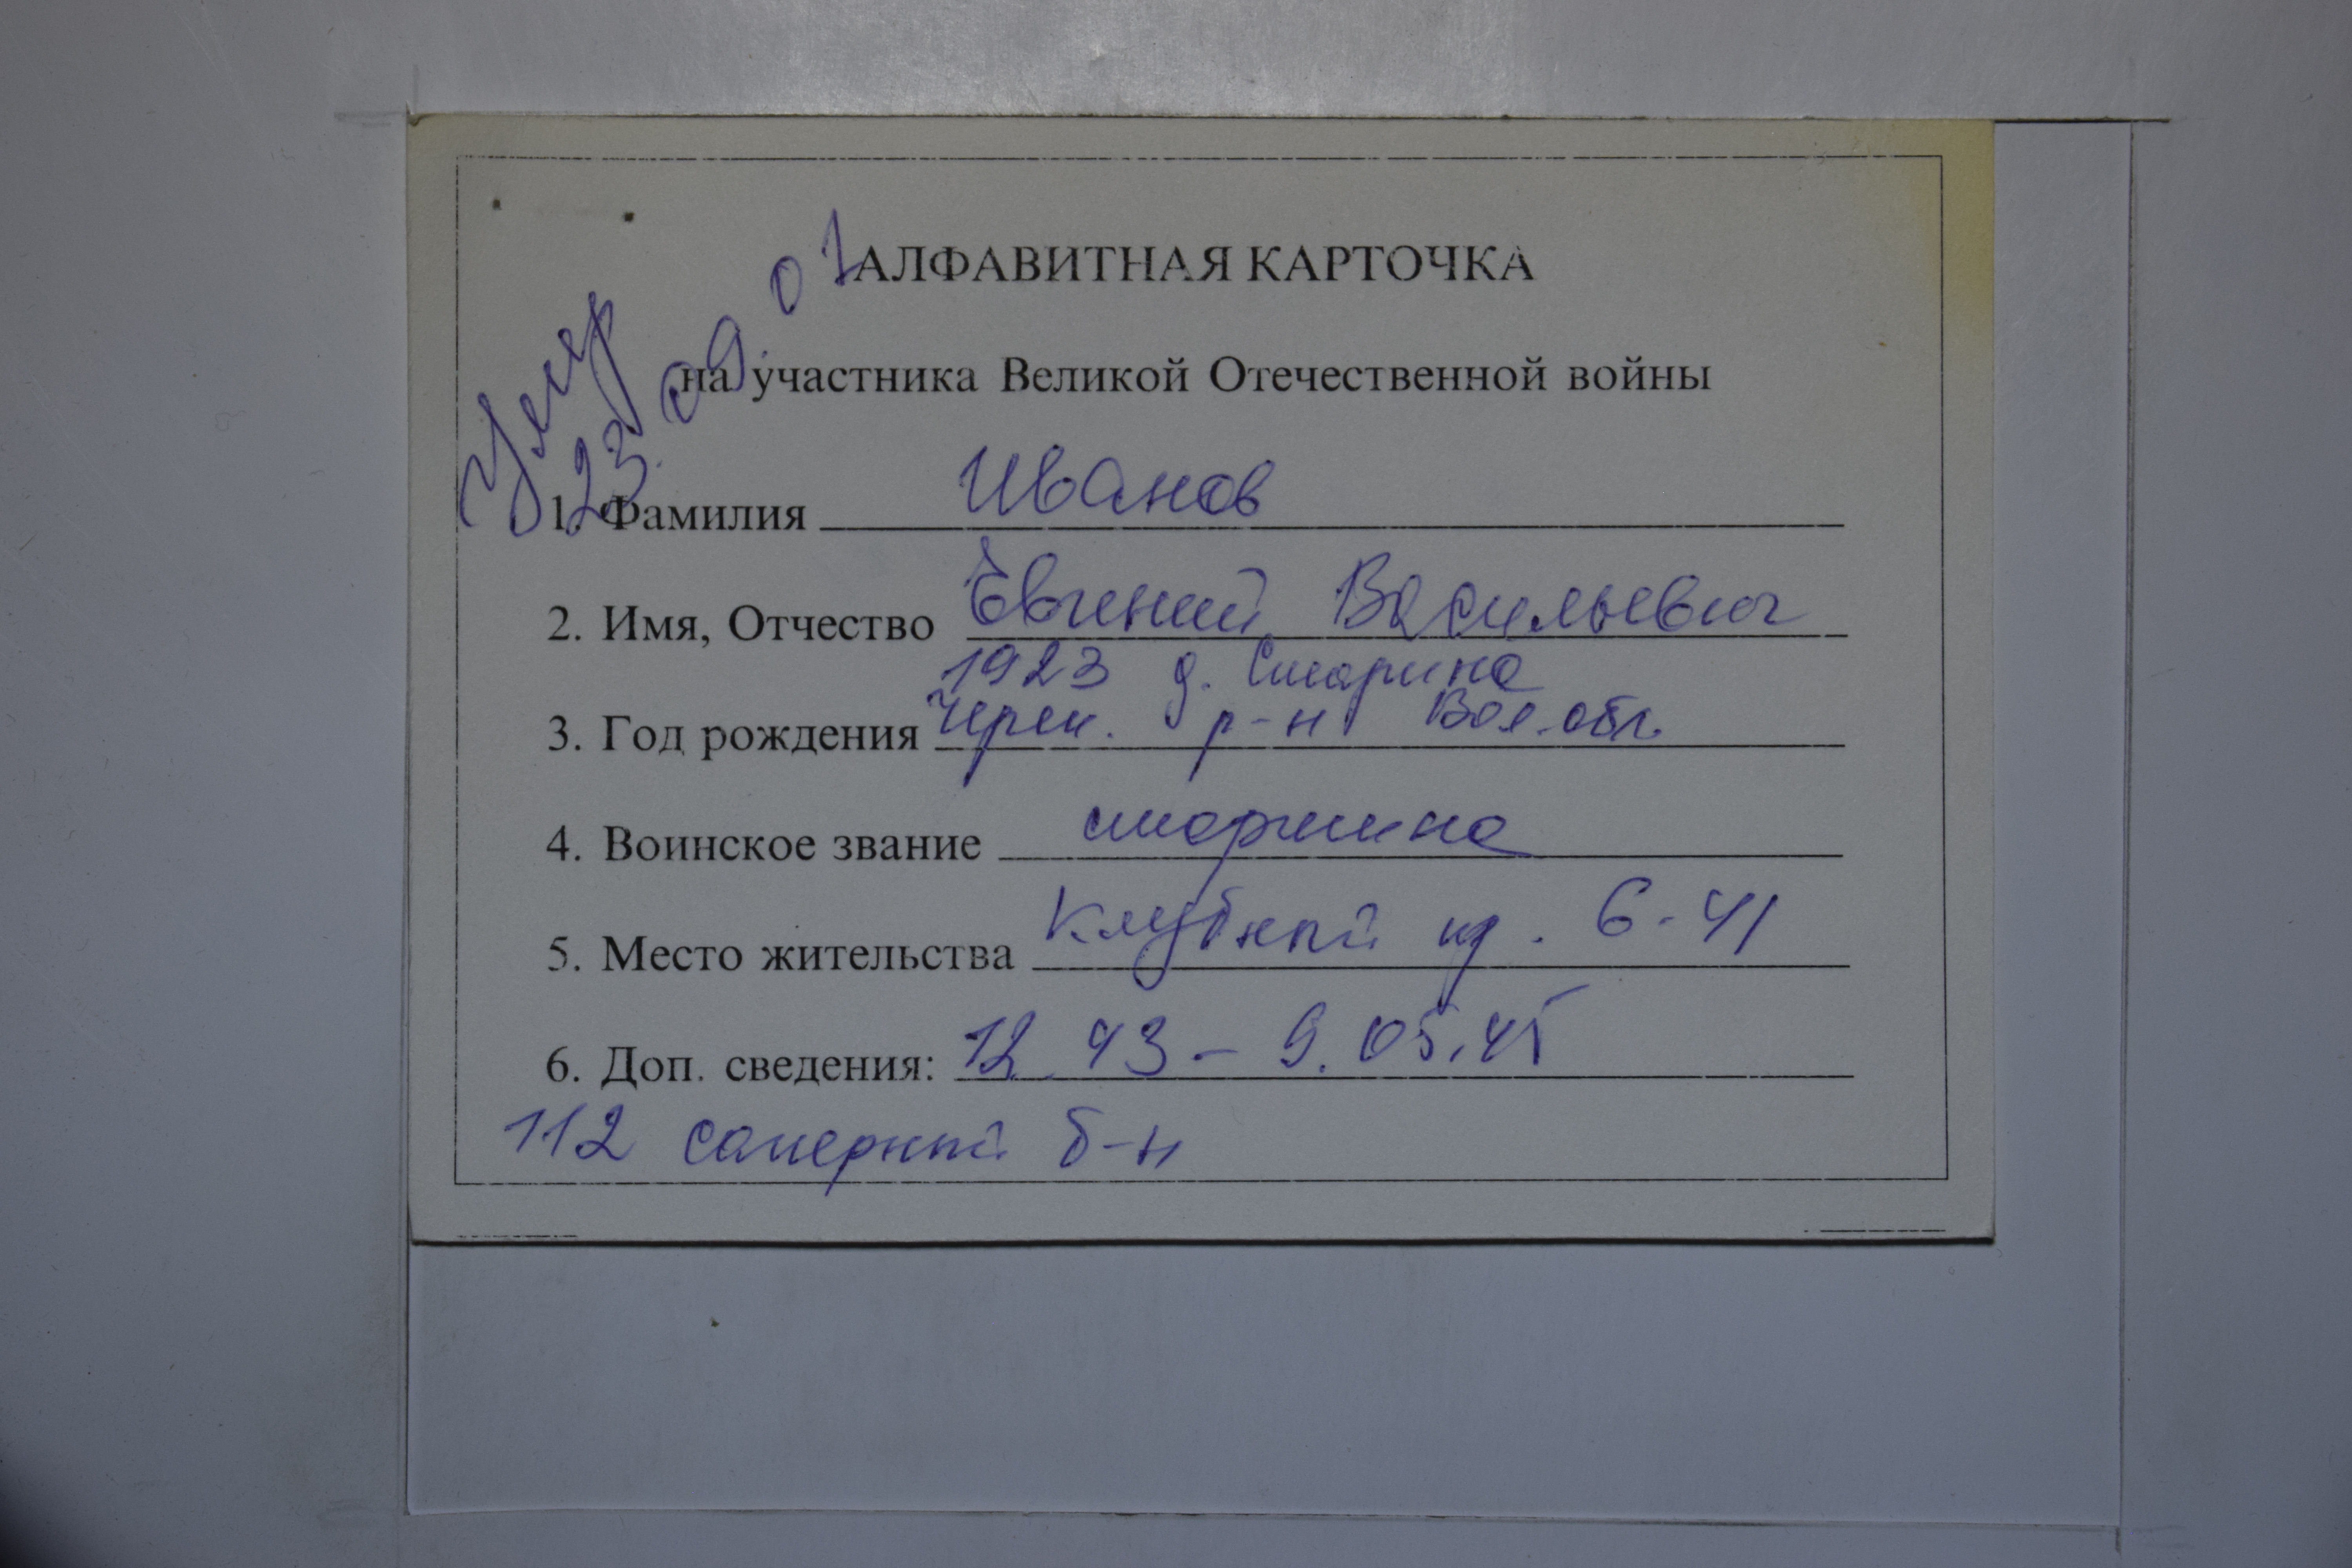 АЛФАВИТНАЯ КАРТОЧКА
на участника Великой Отечественной войны
Умер
23.09.01
1. Фамилия Иванов
2. Имя, Отчество Евгений Васильевич
1923 д. Старина
3. Год рождения Череп. р-н Вол. обл.
4. Воинское звание старшина
5. Место жительства Клубный пр. 6-41
6. Доп. сведения: 12.43 – 9.05.45
112 саперный б-н